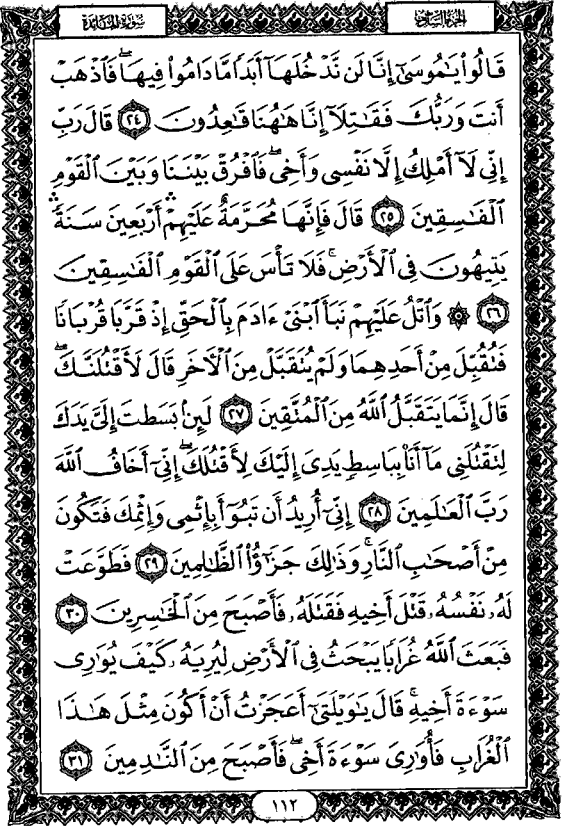 سورة المائدة
الجزء السادس
قَالُواْ يَٰمُوسَىٰٓ إِنَّا لَن نَّدْخُلَهَآ أَبَدًا مَّا دَامُواْ فِيهَا ۖ فَٱذْهَبْ
أَنتَ وَرَبُّكَ فَقَٰتِلَآ إِنَّا هَٰهُنَا قَٰعِدُونَ ٢٤ قَالَ رَبِّ
إِنِّى لَآ أَمْلِكُ إِلَّا نَفْسِى وَأَخِى ۖ فَٱفْرُقْ بَيْنَنَا وَبَيْنَ ٱلْقَوْمِ
ٱلْفَٰسِقِينَ ٢٥ قَالَ فَإِنَّهَا مُحَرَّمَةٌ عَلَيْهِمْ ۛ أَرْبَعِينَ سَنَةً ۛ
يَتِيهُونَ فِى ٱلْأَرْضِ ۚ فَلَا تَأْسَ عَلَى ٱلْقَوْمِ ٱلْفَٰسِقِينَ
٢٦ ۞ وَٱتْلُ عَلَيْهِمْ نَبَأَ ٱبْنَىْ ءَادَمَ بِٱلْحَقِّ إِذْ قَرَّبَا قُرْبَانًا
فَتُقُبِّلَ مِنْ أَحَدِهِمَا وَلَمْ يُتَقَبَّلْ مِنَ ٱلْءَاخَرِ قَالَ لَأَقْتُلَنَّكَ ۖ
قَالَ إِنَّمَا يَتَقَبَّلُ ٱللَّهُ مِنَ ٱلْمُتَّقِينَ ٢٧ لَئِنۢ بَسَطتَ إِلَىَّ يَدَكَ
لِتَقْتُلَنِى مَآ أَنَا۠ بِبَاسِطٍ يَدِىَ إِلَيْكَ لِأَقْتُلَكَ ۖ إِنِّىٓ أَخَافُ ٱللَّهَ
رَبَّ ٱلْعَٰلَمِينَ ٢٨ إِنِّىٓ أُرِيدُ أَن تَبُوٓأَ بِإِثْمِى وَإِثْمِكَ فَتَكُونَ
مِنْ أَصْحَٰبِ ٱلنَّارِ ۚ وَذَٰلِكَ جَزَٰٓؤُاْ ٱلظَّٰلِمِينَ ٢٩ فَطَوَّعَتْ
لَهُۥ نَفْسُهُۥ قَتْلَ أَخِيهِ فَقَتَلَهُۥ فَأَصْبَحَ مِنَ ٱلْخَٰسِرِينَ ٣٠
فَبَعَثَ ٱللَّهُ غُرَابًا يَبْحَثُ فِى ٱلْأَرْضِ لِيُرِيَهُۥ كَيْفَ يُوَٰرِى
سَوْءَةَ أَخِيهِ ۚ قَالَ يَٰوَيْلَتَىٰٓ أَعَجَزْتُ أَنْ أَكُونَ مِثْلَ هَٰذَا
ٱلْغُرَابِ فَأُوَٰرِىَ سَوْءَةَ أَخِى ۖ فَأَصْبَحَ مِنَ ٱلنَّٰدِمِينَ ٣١
١١٢